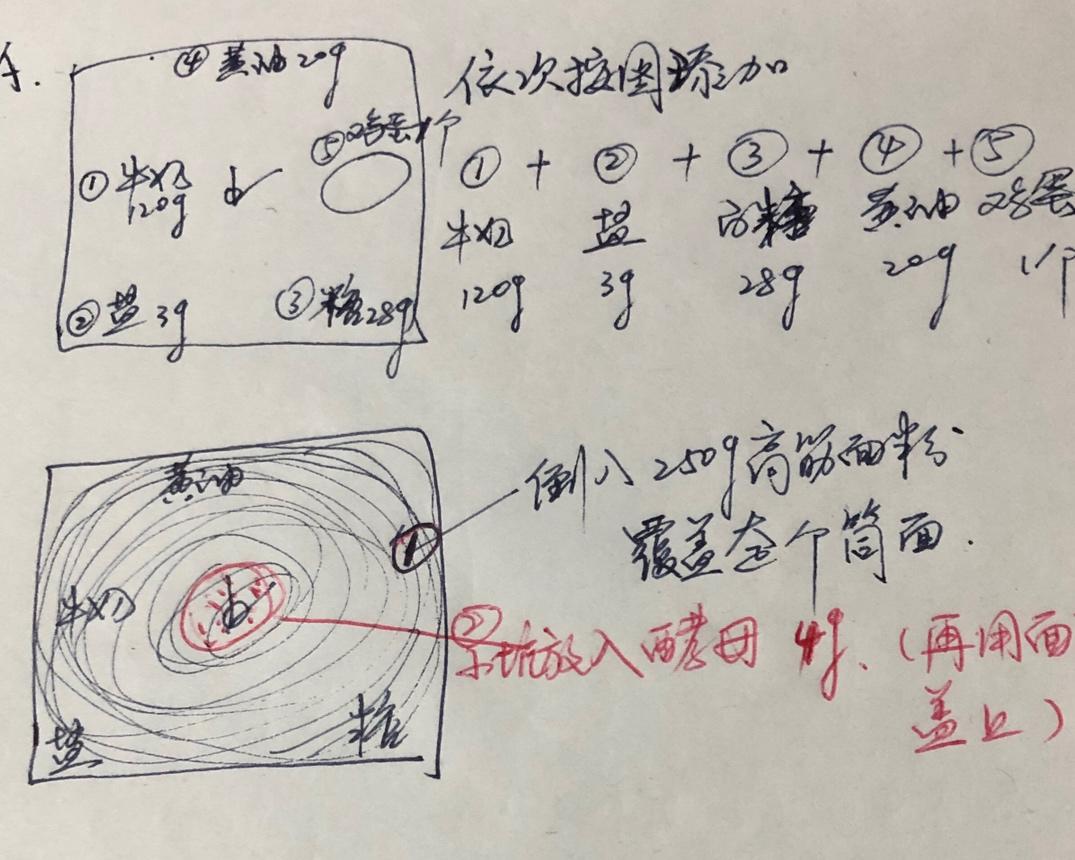 ④黄油20g
⑤鸡蛋1个
①牛奶
120g
②盐3g
③糖28g
依次按图添加
①+②+③+④+⑤
牛奶 盐 白糖 黄油 鸡蛋
120g 3g 28g 20g 1个
黄油
牛奶
盐
糖
①
倒入250g高筋面粉
覆盖在个筒面.
②
坑放入酵母 4g.(再用面
盖上)